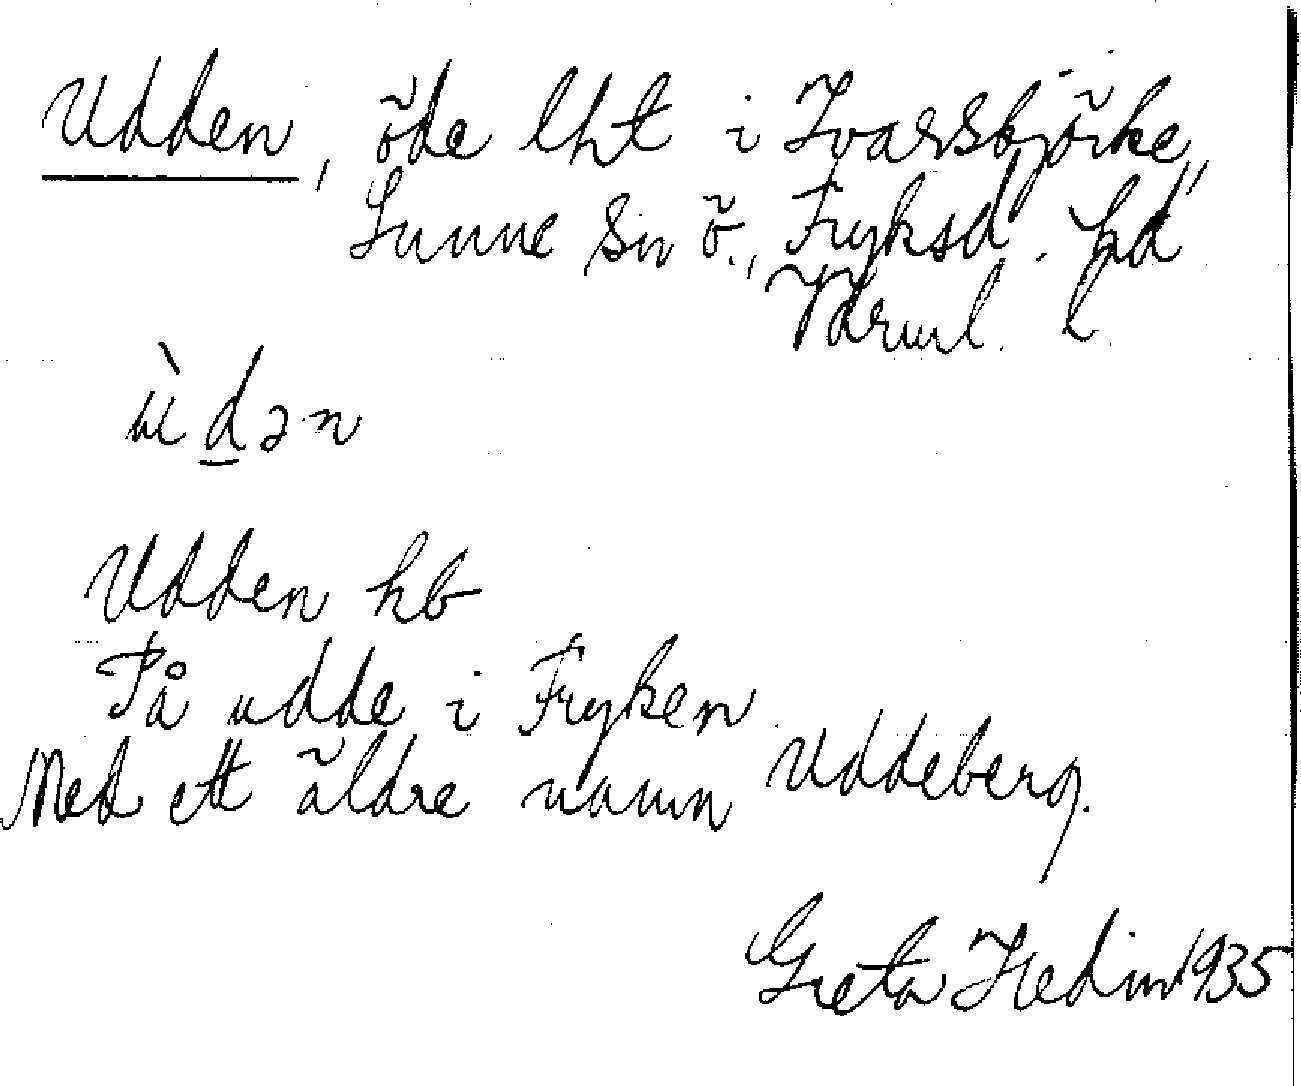 Udden, öde lht i Ivarsbjörke,
Sunne sn ö., Fryksd. hd
Värml. l.
ùdən
Udden hb
På udde i Fryken
Med ett äldre namn Uddeberg.
Greta Hedin 1935